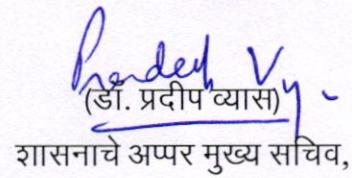 Pradeep Vy.
(डॉ. प्रदीप व्यास)
शासनाचे अप्पर मुख्य सचिव,